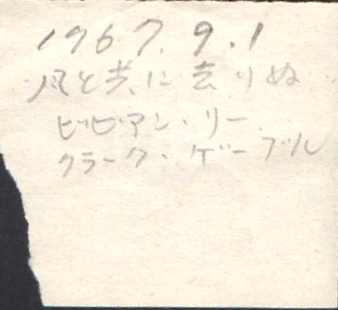 1967.9.1
風と共に去りぬ
ビビアン・リー
クラーク・ゲーブル